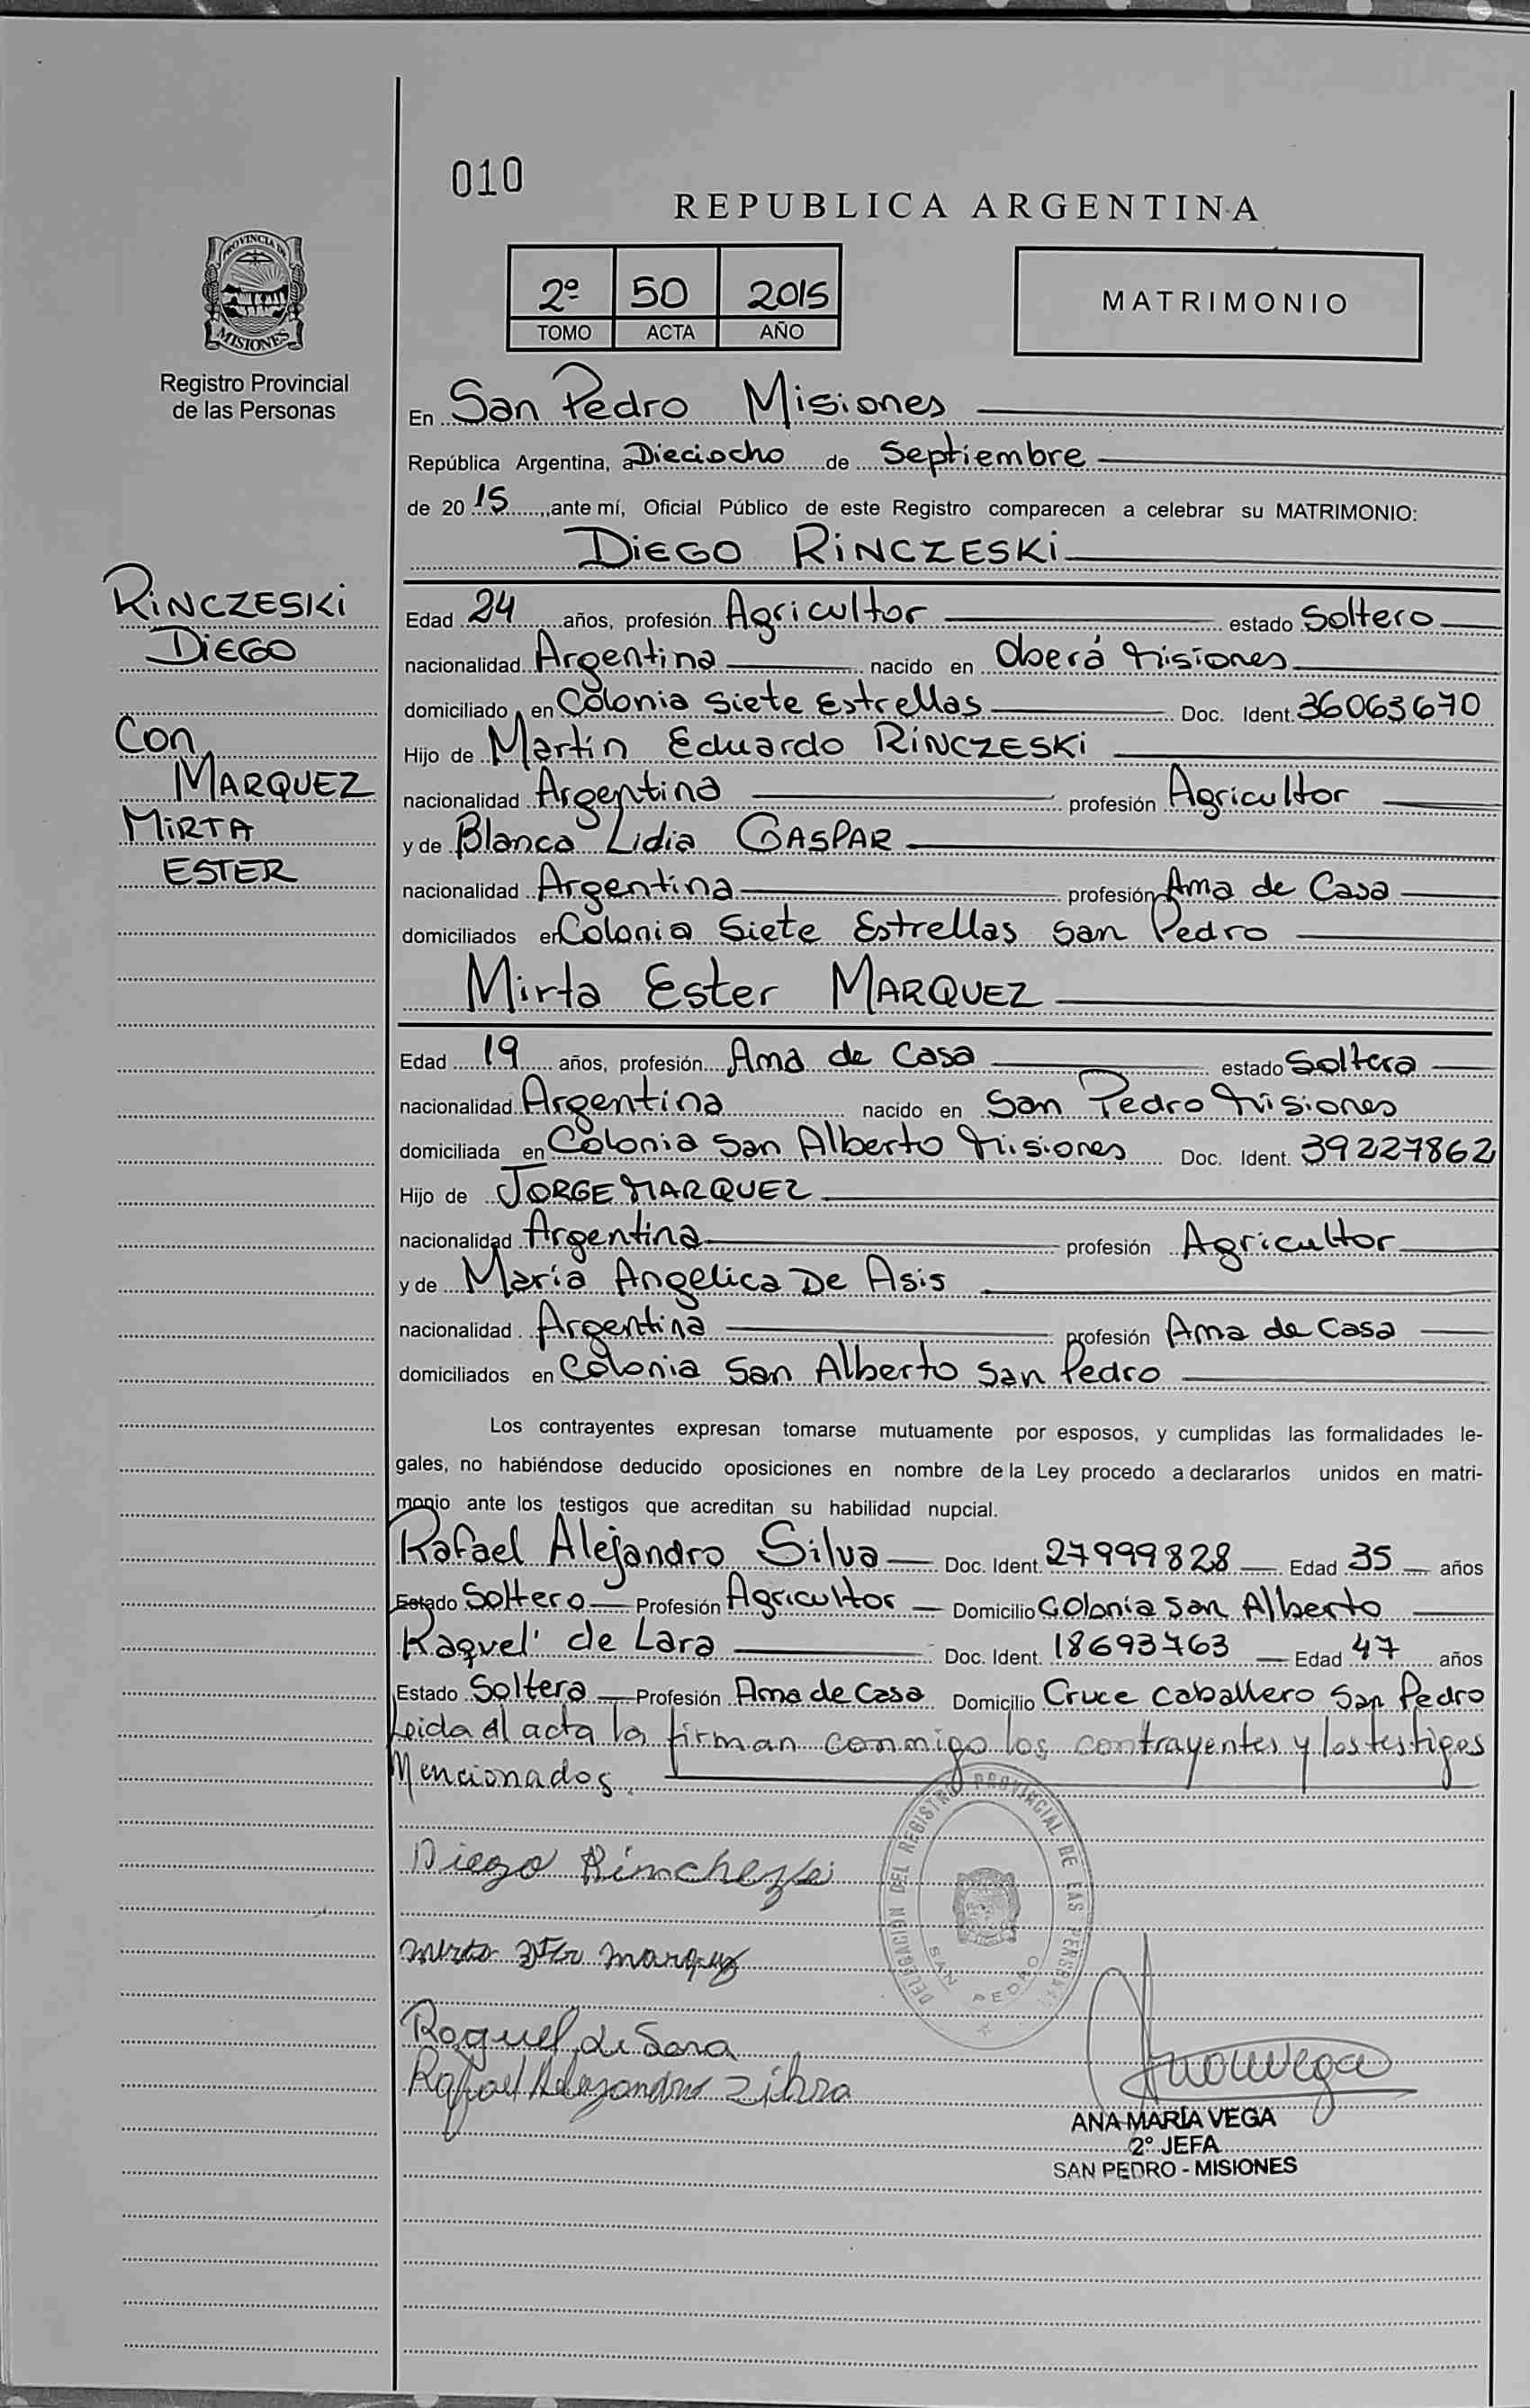 010
REPUBLICA ARGENTINA
PROVINCIA DE
MISIONES
Registro Provincial
de las Personas
2º 50 2015
TOMO ACTA AÑO
MATRIMONIO
En San Pedro Misiones
República Argentina, a Dieciocho de Septiembre
de 20 15, ante mí, Oficial Público de este Registro comparecen a celebrar su MATRIMONIO:
DiEGO RiNCZESKi
RiNCZESKi
DiEGO
Con
MARQUEZ
MiRTA
ESTER
Edad 24 años, profesión Agricultor estado Soltero
nacionalidad Argentina nacido en Oberá Misiones
domiciliado en Colonia Siete Estrellas Doc. Ident. 36063670
Hijo de Martín Eduardo RiNCZESKi
nacionalidad Argentina profesión Agricultor
y de Blanca Lidia GASPAR
nacionalidad Argentina profesión Ama de Casa
domiciliados en Colonia Siete Estrellas San Pedro
Mirta Ester MARQUEZ
Edad 19 años, profesión Ama de Casa estado Soltera
nacionalidad Argentina nacido en San Pedro Misiones
domiciliada en Colonia San Alberto Misiones Doc. Ident. 39227862
Hijo de JORGE MARQUEZ
nacionalidad Argentina profesión Agricultor
y de María Angelica De Asis
nacionalidad Argentina profesión Ama de Casa
domiciliados en Colonia San Alberto San Pedro
Los contrayentes expresan tomarse mutuamente por esposos, y cumplidas las formalidades le-
gales, no habiéndose deducido oposiciones en nombre de la Ley procedo a declararlos unidos en matri-
monio ante los testigos que acreditan su habilidad nupcial.
Rafael Alejandro Silva Doc. Ident. 27999828 Edad 35 años
Estado Soltero Profesión Agricultor Domicilio Colonia San Alberto
Raquel de Lara Doc. Ident. 18693763 Edad 47 años
Estado Soltera Profesión Ama de Casa Domicilio Cruce Caballero San Pedro
Leida el acta la firman conmigo los contrayentes y los testigos
Mencionados
DELEGACION DEL REGISTRO PROVINCIAL DE LAS PERSONAS
SAN PEDRO
Diego
marquez
Raquel de Lara
Rafael
ANA MARÍA VEGA
2º JEFA
SAN PEDRO - MISIONES